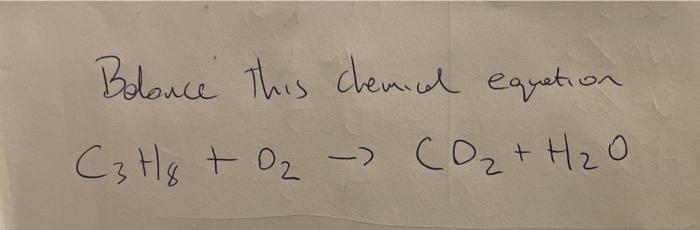 Balance this chemical equation
C₃H₈ + O₂ → CO₂ + H₂O